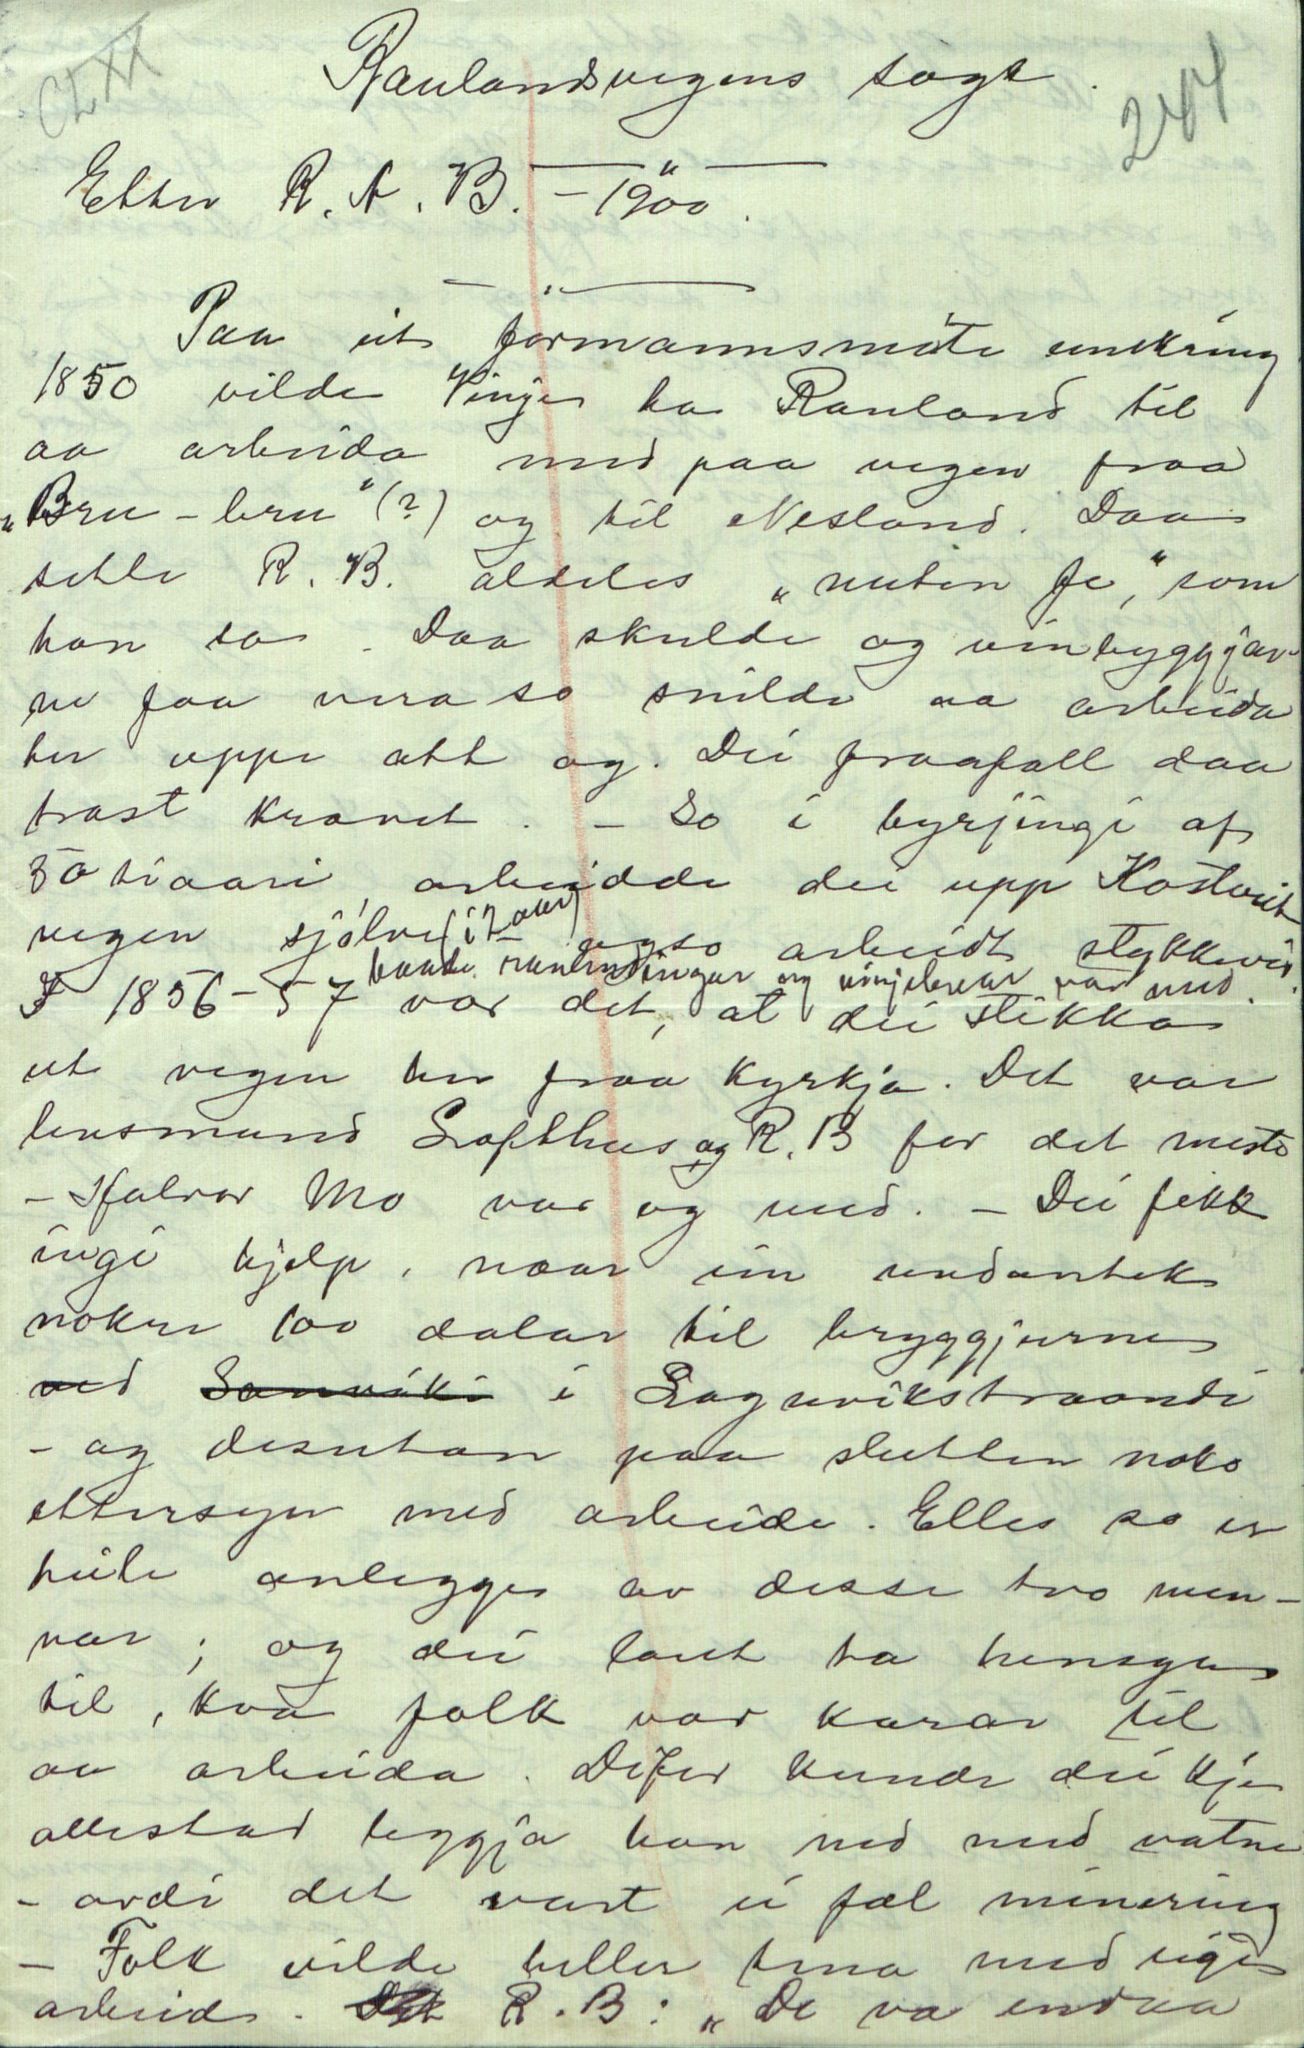 CLXX
244
Raulandsvegens soga.
Etter R. A. B. – 1900.
Paa eit formannsmøte umkring
1850 vilde Vinje ha Rauland til
aa arbeida med paa vegen fraa
„Bru-bru" (?) og til Nesland. Daa
sette R. B. aldeles „nuten fe," som
han sa. Daa skulde og vinbyggjar-
ne faa vera so snilde aa arbeida
her uppe att og. Dei fraafall daa
trast kravet. – So i byrjingi af
50 tiaari arbeidde dei upp Kostveit
vegen sjølve (i 2 aar) – ogso arbeidt stykkevis.
baade raulendingar og vinjebuar var med.
I 1856-57 var det, at dei stikka
ut vegen her fraa kyrkja. Det var
lensmand Lofthus og R. B for det meste
– Halvor Mo var og med. – Dei fekk
ingi hjelp, naar ein undantek
nokre 100 dalar til bryggjurne
ved Sanviki i Lognvikstraandi
– og desutan paa slutten noko
ettersyn med arbeide. Elles so er
heile anlegge av desse tvo men-
nar; og dei laut ta hensyn
til, kva folk var karar til
aa arbeida. Difor kunde dei kje
allestad leggja han ned med vatne
– ordi det vart ei fæl minering
– Folk vilde heller tena med eige
arbeid. Det R. B: „De va endaa